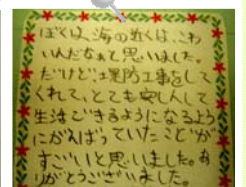 ぼくは、海の近くは、こわ
いんだなぁと思いました。
だけど、堤防工事をして
くれて、とても安しんして
生活できるようになるよう
にがんばっていたことが
すごいと思いました。あ
りがとうございました。